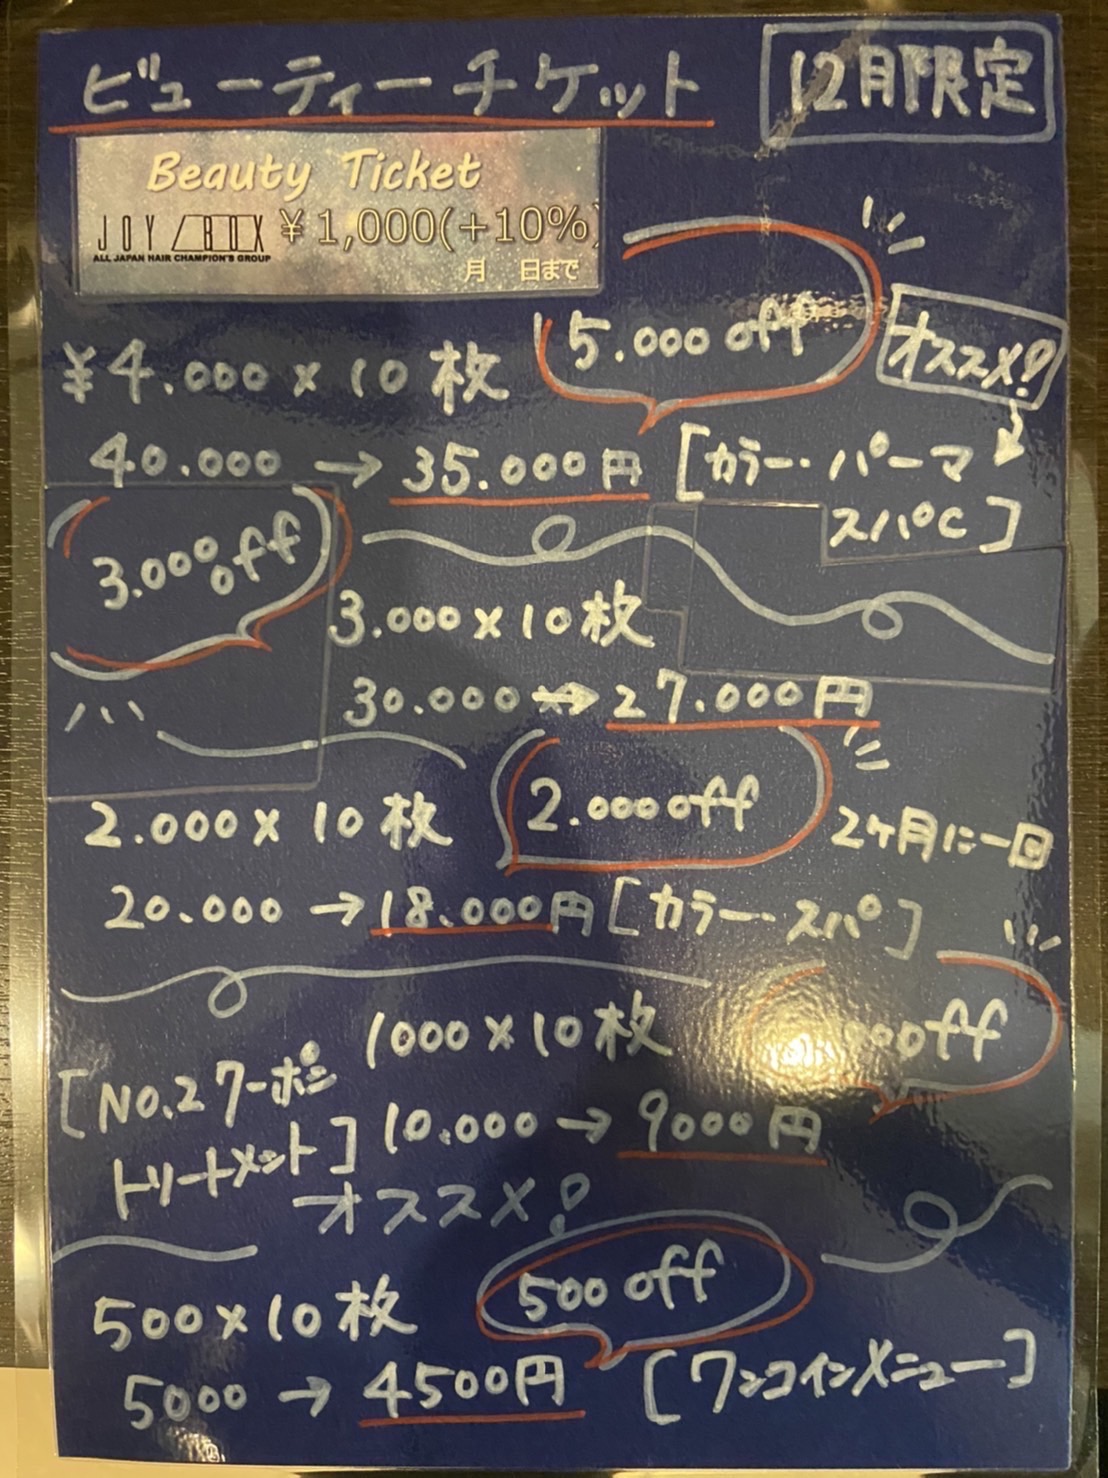 ビューティーチケット
12月限定
Beauty Ticket
JOY BOX ¥1,000(+10%)
ALL JAPAN HAIR CHAMPION'S GROUP
月 日まで
5.000 off
オススメ!
¥4.000×10枚
40.000→35.000円 [カラー・パーマ
スパC]
3.000off
3.000×10枚
30.000→27.000円
2.000×10枚
2.000off
2ヶ月に一回
20.000→18.000円[カラー・スパ]
1000×10枚
off
[NO.2クーポン
トリートメント]
10.000→9000円
オススメ!
500×10枚
500 off
5000→4500円 [ワンコインメニュー]